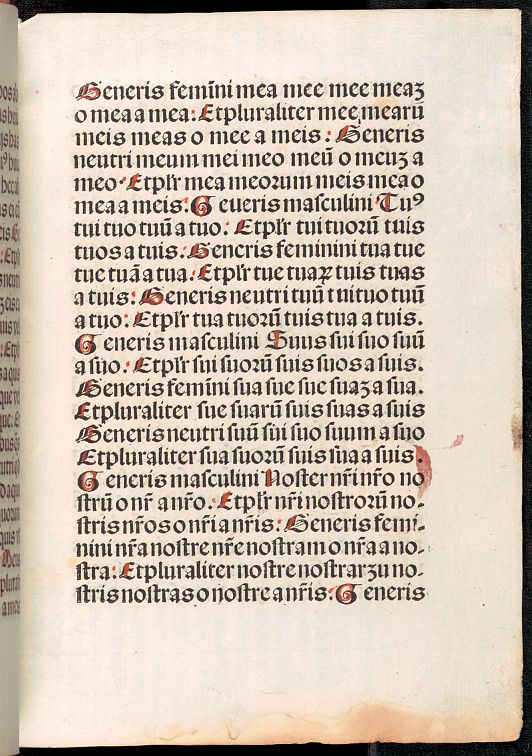 Generis femīni mea mee mee meaʒ
o mea a mea: Etpluraliter mee mearū
meis meas o mee a meis: Generis
neutri meum mei meo meū o meuʒ a
meo· Etplr̄ mea meorum meis mea o
mea a meis. Geueris masculini Tuꝰ
tui tuo tuū a tuo: Etplr̄ tui tuorū tuis
tuos a tuis. Generis feminini tua tue
tue tuā a tua. Etplr̄ tue tuaꝝ tuis tuas
a tuis: Generis neutri tuū tui tuo tuū
a tuo: Etplr̄ tua tuorū tuis tua a tuis.
Generis masculini Suus sui suo suū
a suo. Etplr̄ sui suorū suis suos a suis.
Generis femīni sua sue sue suaʒ a sua.
Etpluraliter sue suarū suis suas a suis
Generis neutri suū sui suo suum a suo
Etpluraliter sua suorū suis sua a suis.
Generis masculini Noster nr̄i nr̄o no
strū o nr̄ a nr̄o. Etplr̄ nr̄i nostrorū no-
stris nr̄os o nr̄i a nr̄is: Generis femi-
nini nr̄a nostre nr̄e nostram o nr̄a a no-
stra: Etpluraliter nostre nostrarʒu no-
stris nostras o nostre a nr̄is: Generis